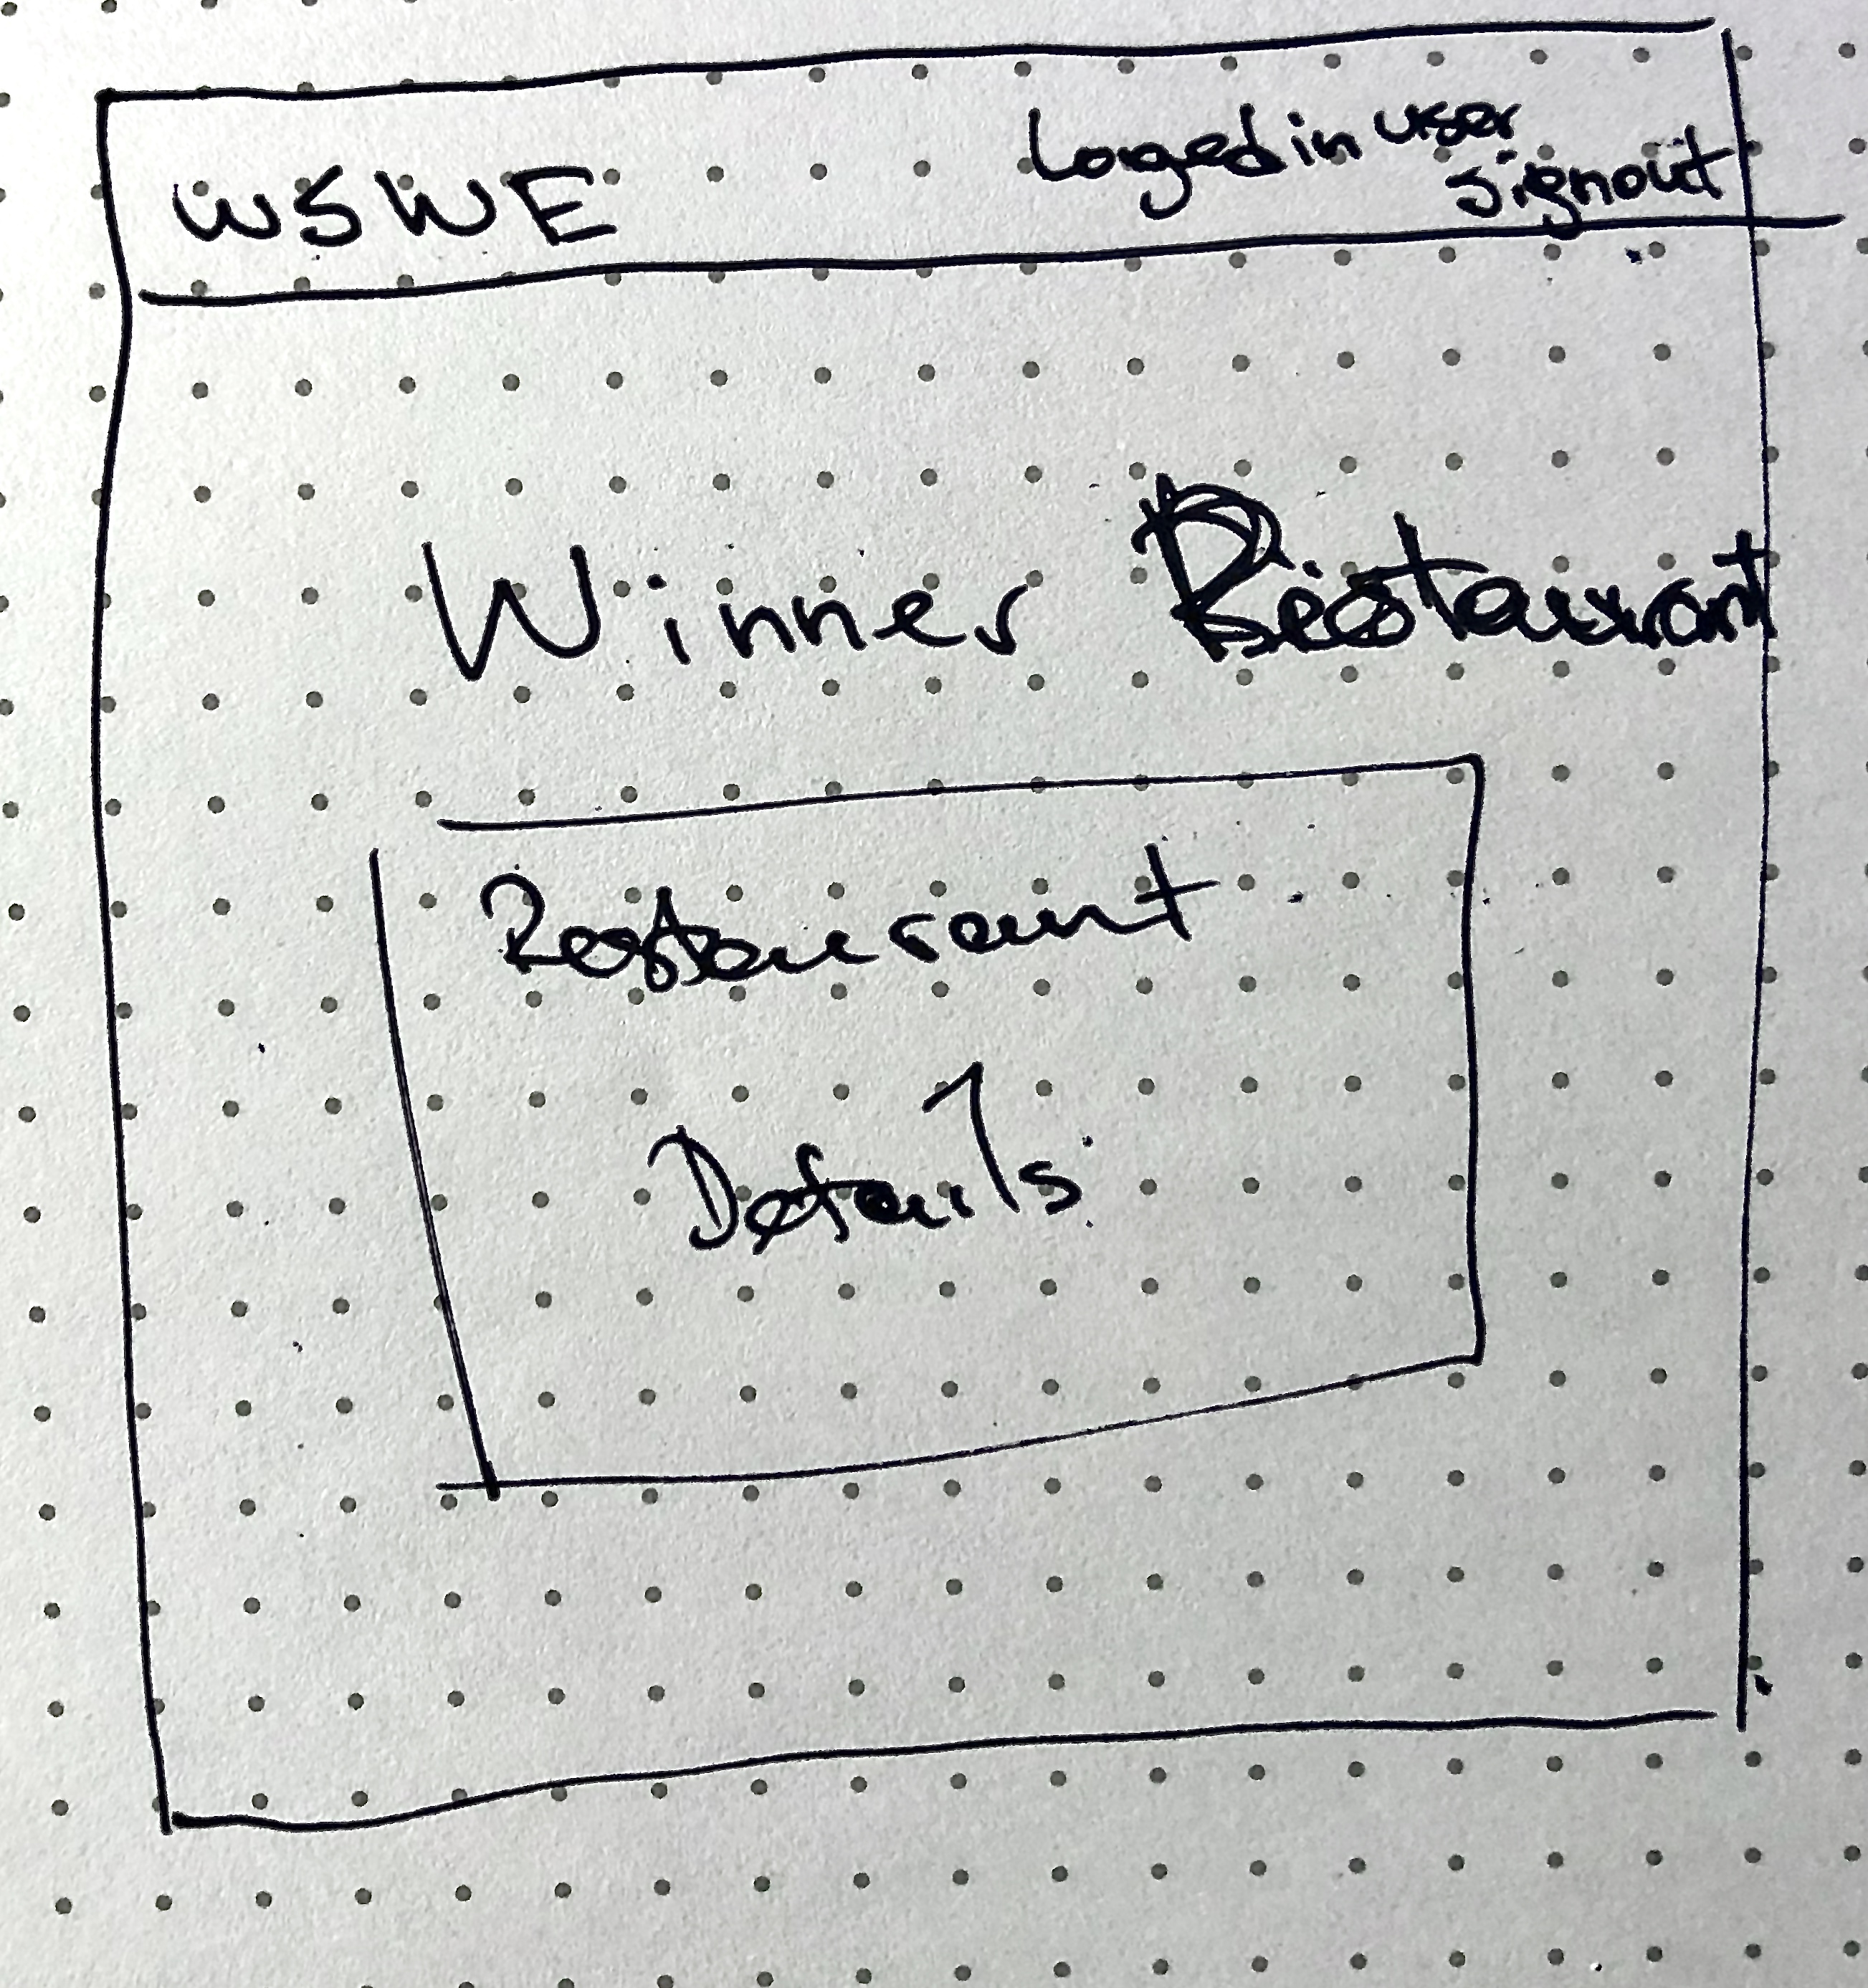 WSWE
Loged in user
signout
Winner Restaurant
Restaurant
Details